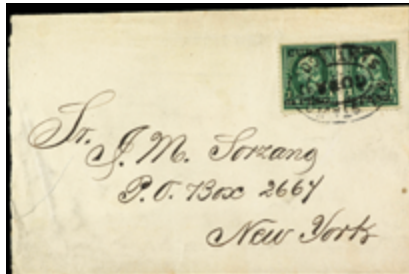 Sr. J. M. Sorzano
P. O. Box 2667
New York